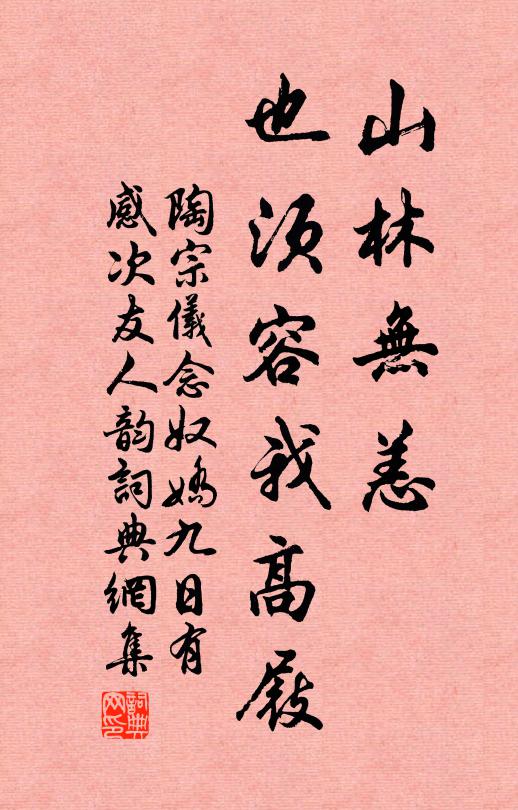 山林無恙
也須容我高屐
陶宗儀念奴嬌九日有
感次友人韵詞典網集
詞典網印